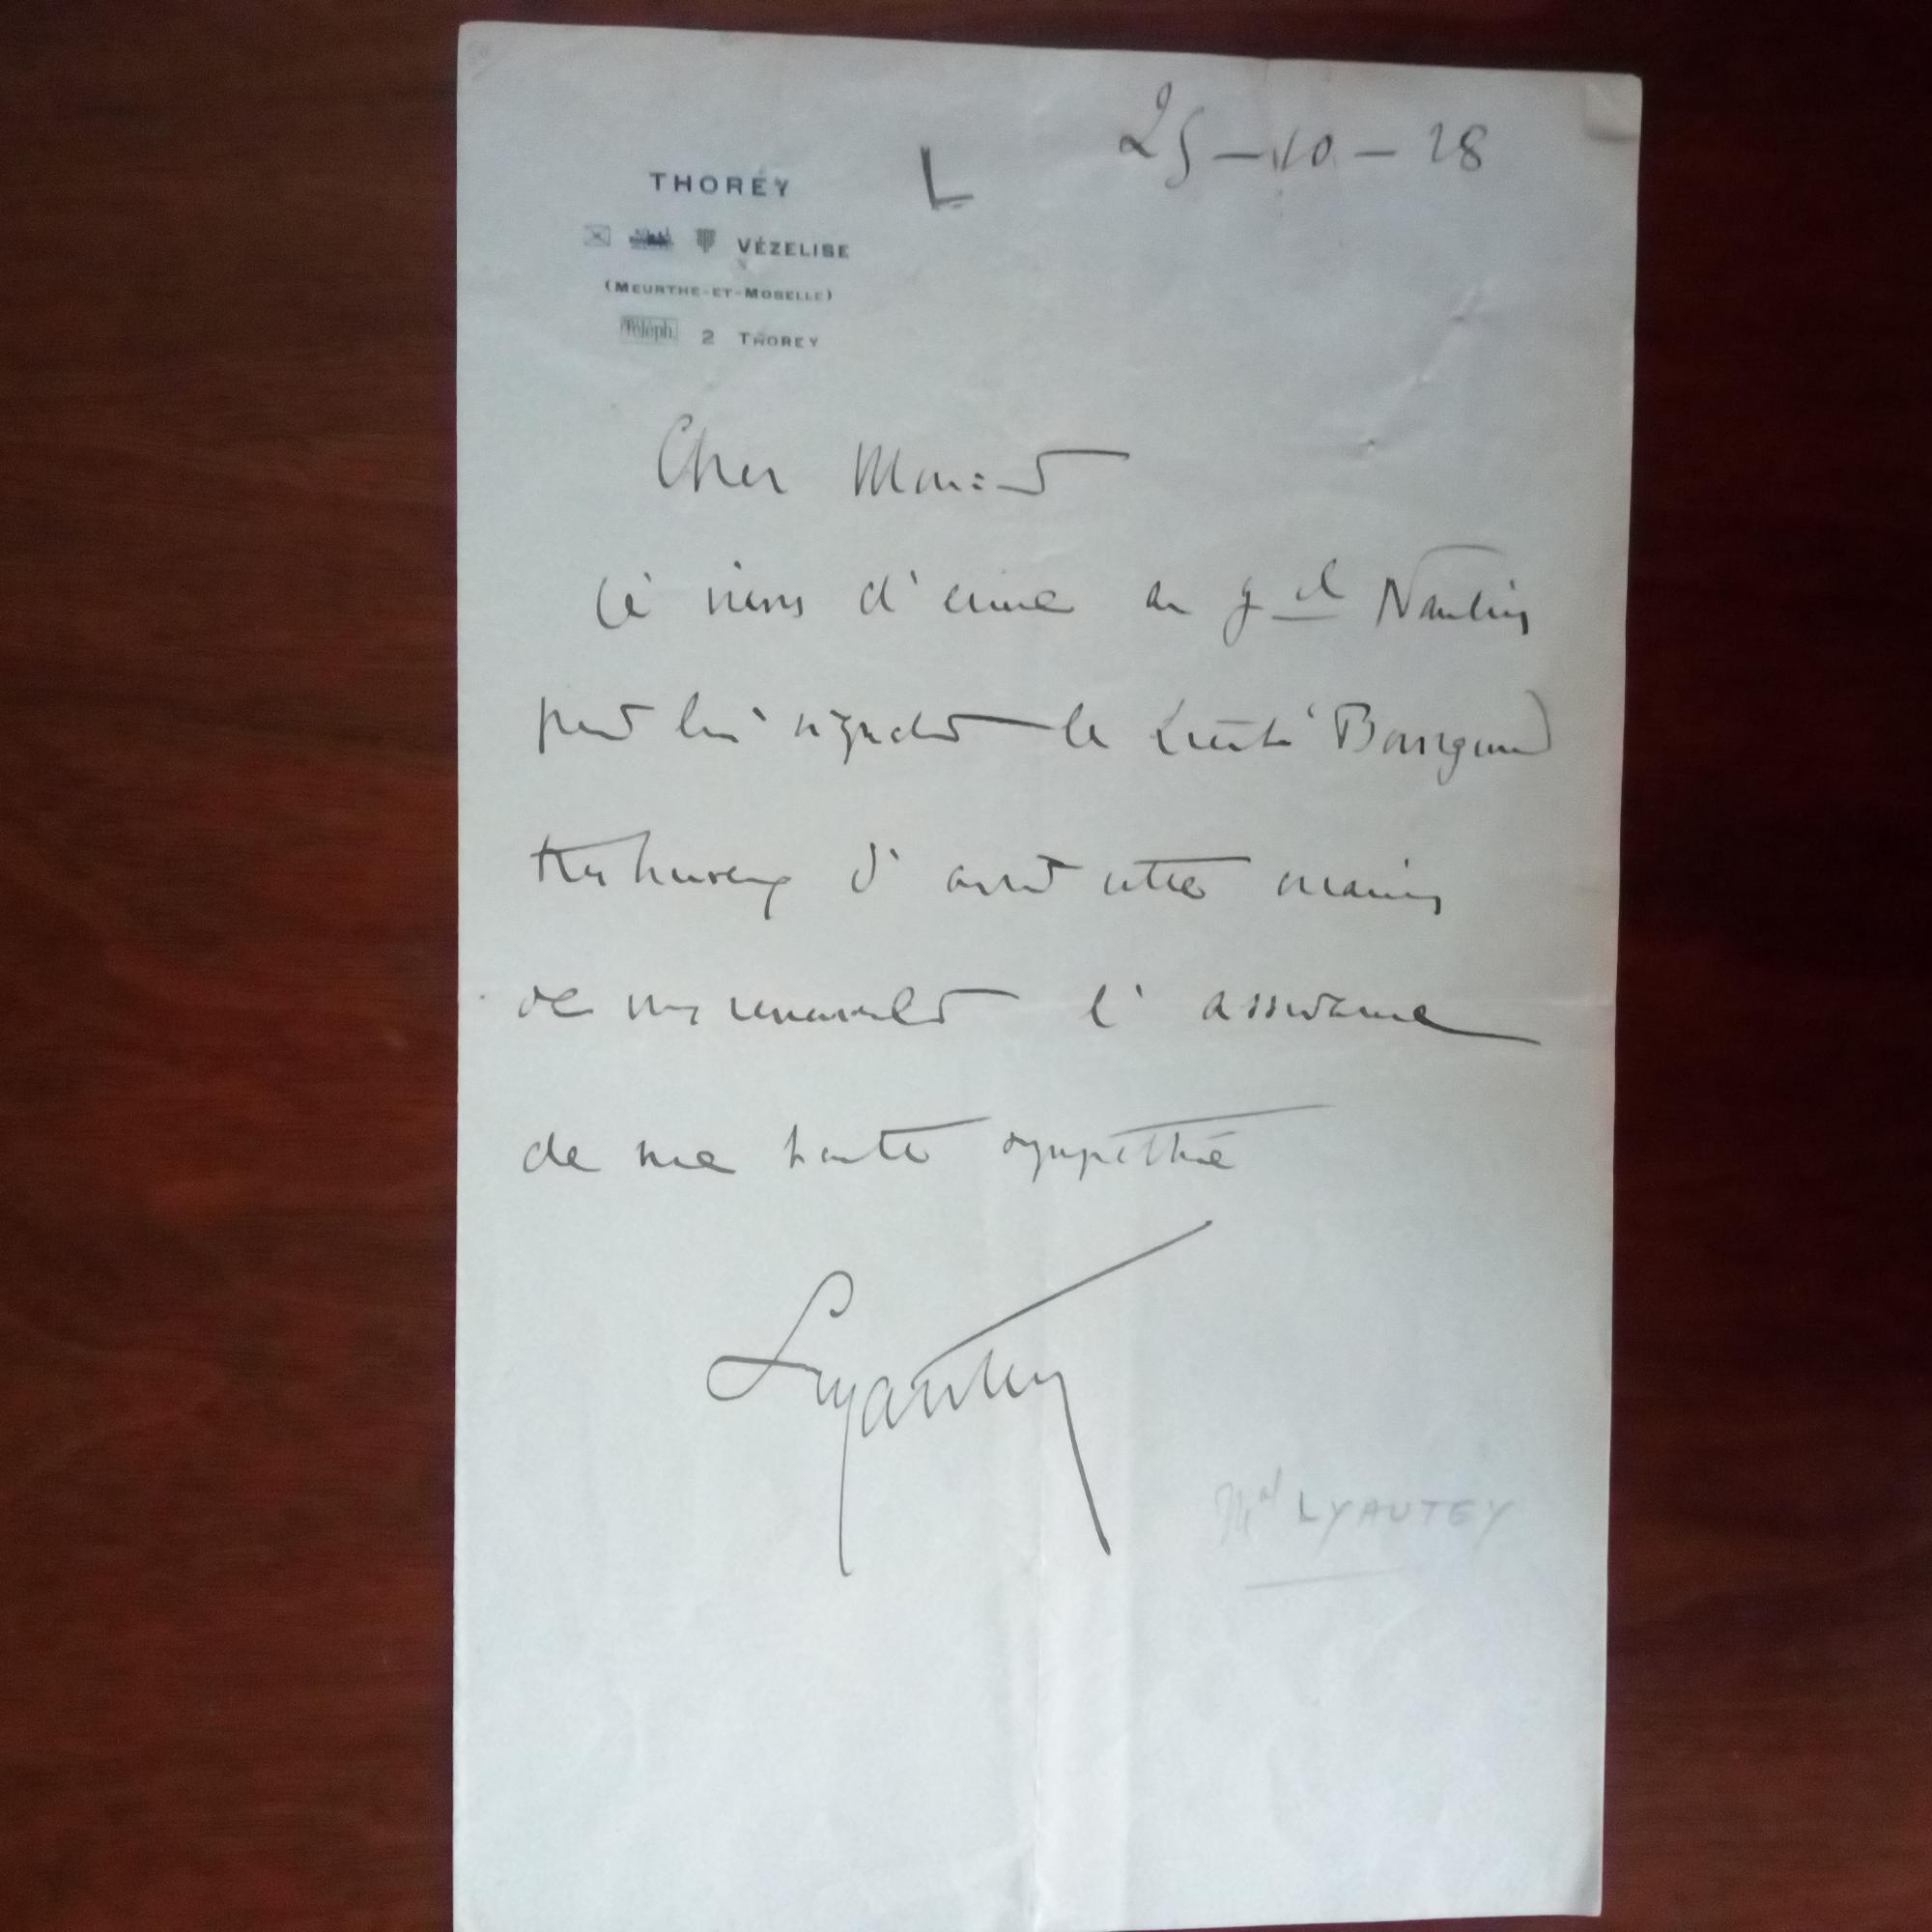 THOREY
L
25-10-28
VÉZELISE
(MEURTHE-ET-MOSELLE)
Téléph. 2 THOREY
Cher Monsieur
Je viens d'écrire au gal Naulin
pour lui signaler le Lieut
très heureux d'avoir cette occasion
de vous renouveler l'assurance
de ma haute sympathie
Lyautey
Mal LYAUTEY